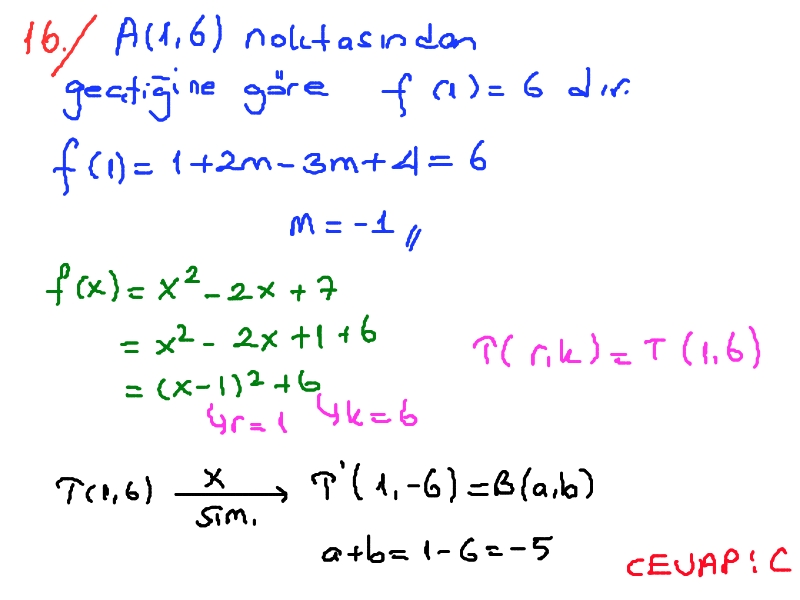 16./ A(1,6) noktasından
geçtiğine göre f(1)= 6 dır.
f(1)= 1+2m-3m+4= 6
m = -1 //
f(x)= x²-2x+7
= x²- 2x+1+6
= (x-1)²+6
↳r=1 ↳k=6
T(r,k)=T(1,6)
T(1,6) x sim. → T'(1,-6)=B(a,b)
a+b= 1-6=-5
CEVAP: C